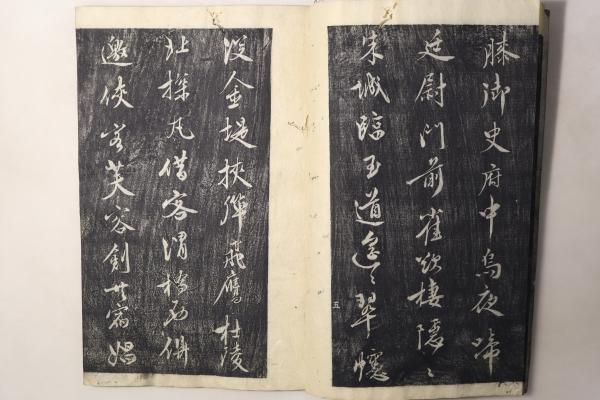 膝御史府中烏夜啼
廷尉門前雀欲棲隱〻
朱城臨玉道遙〻翠幰
五
沒金堤挾彈飛鷹杜陵
北探丸借客渭橋西俱
邀俠客芙容劍共宿娼